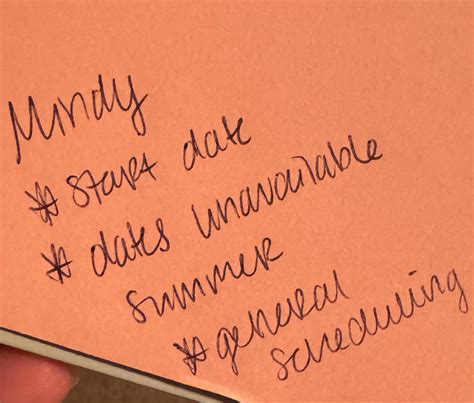 Mindy
* start date
* dates unavailable
summer
* general
scheduling